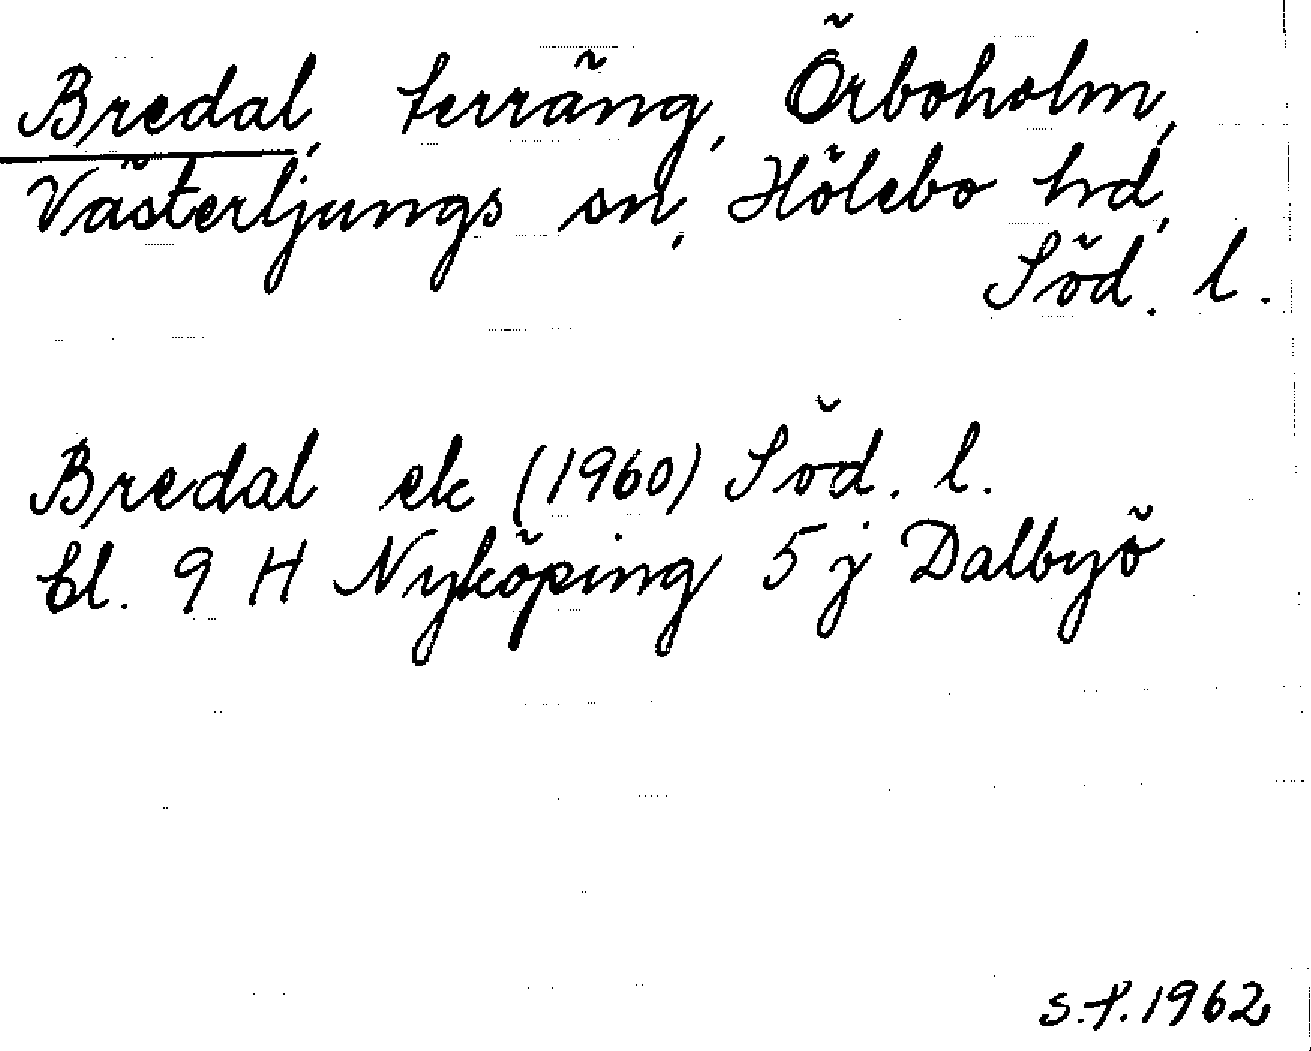 Bredal, terräng, Örboholm,
Västerljungs sn, Hölebo hd,
Söd. l.
Bredal ek (1960) Söd. l.
bl. 9 H Nyköping 5 j Dalbyö
S.P. 1962